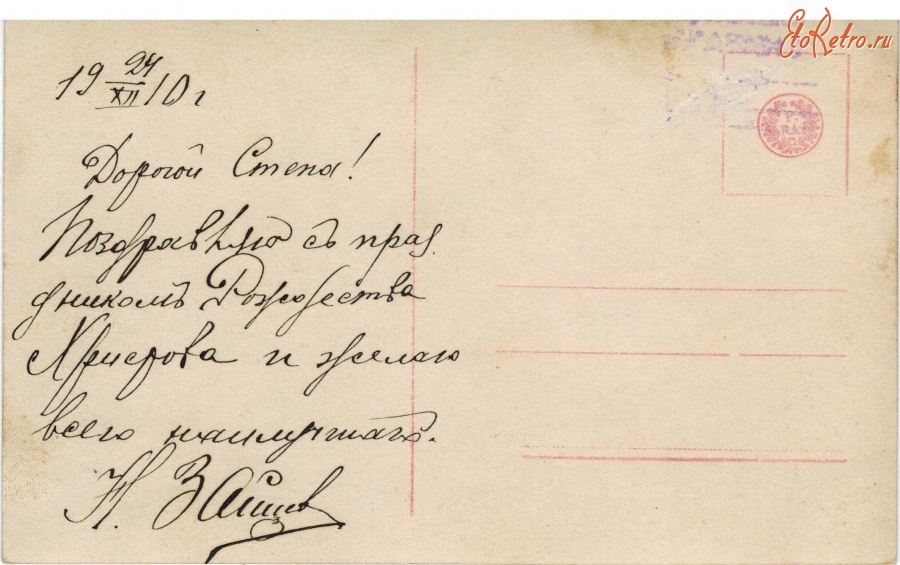 EtoRetro.ru
19 24/XII 10 г
Дорогой Степа!
Поздравляю съ праз
дникомъ Рождества
Христова и желаю
всего наилучшаго.
Н. Зайцев